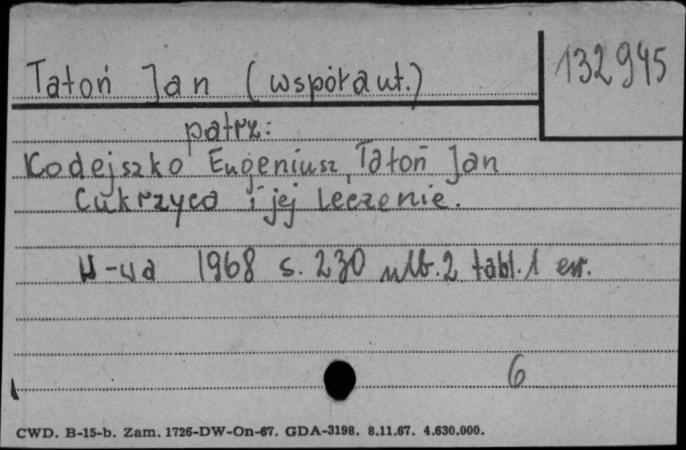 Tatoń Jan (współaut.)
132945
patrz:
Kodejszko Eugeniusz, Tatoń Jan
Cukrzyca i jej leczenie.
W-wa 1968 s. 230 nlb. 2 tabl. 1 err.
6
CWD. B-15-b. Zam. 1726-DW-On-67. GDA-3198. 8.11.67. 4.630.000.